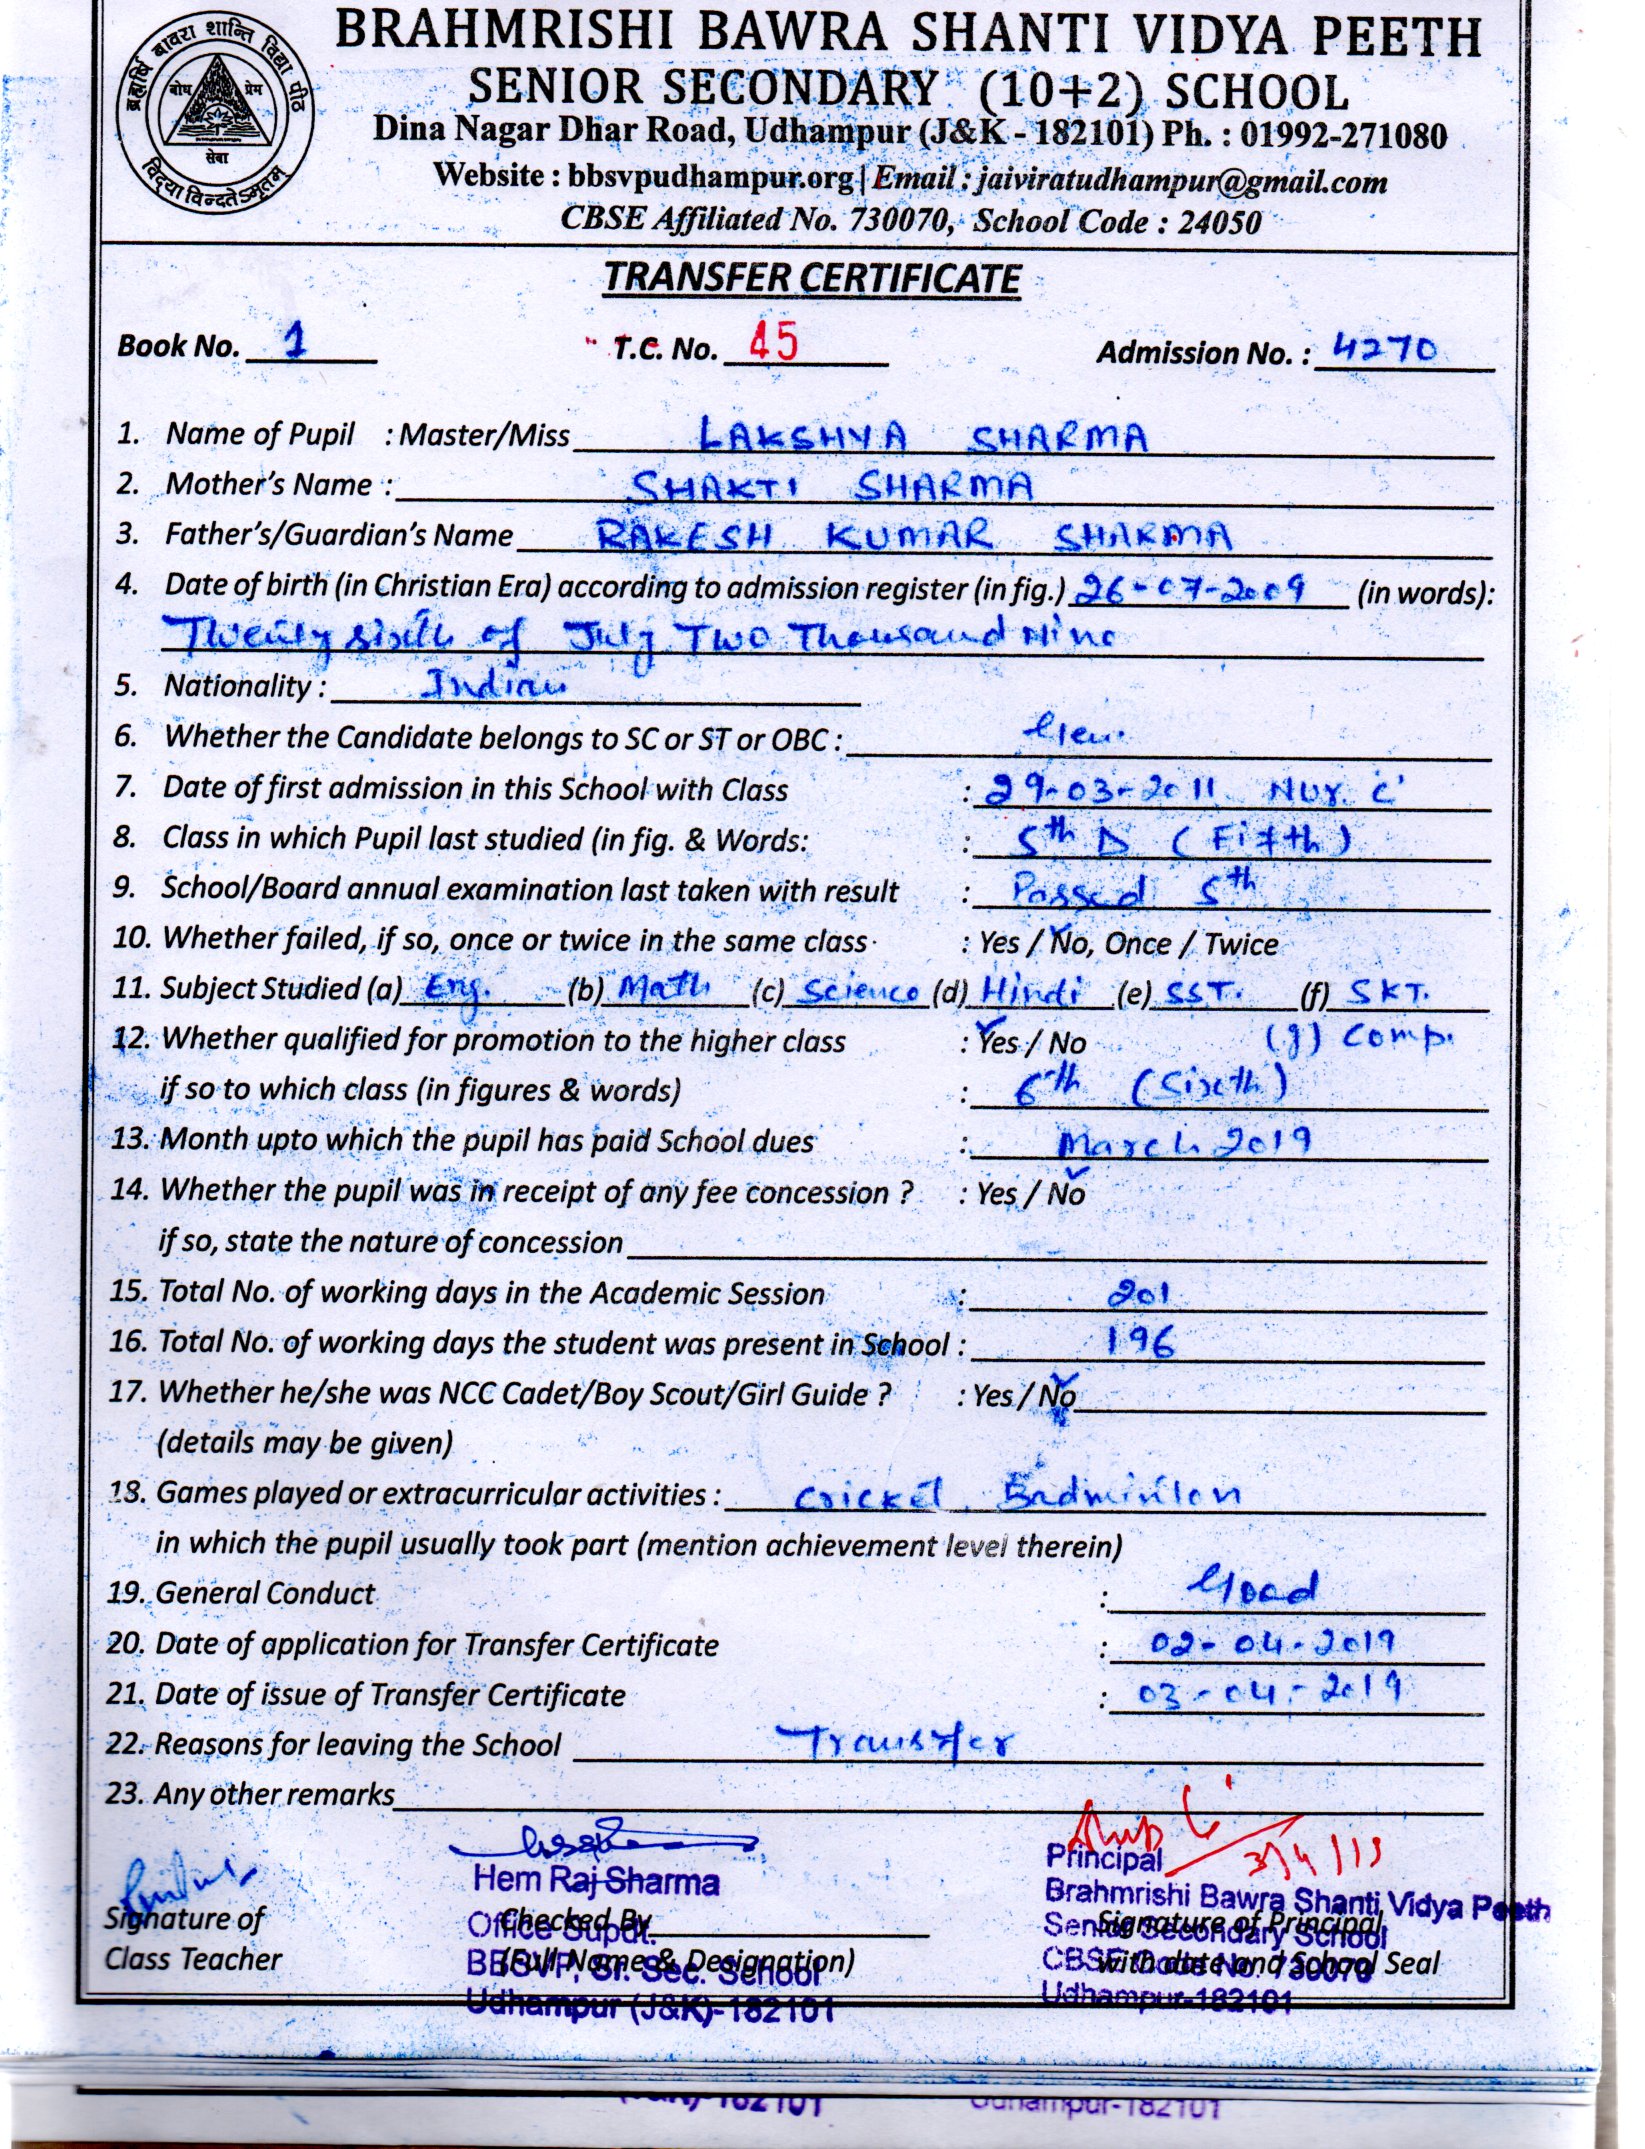 ब्रह्मर्षि बावरा शान्ति विद्या पीठ
बोध प्रेम
सेवा
विद्यया विन्दतेऽमृतम्
BRAHMRISHI BAWRA SHANTI VIDYA PEETH
SENIOR SECONDARY (10+2) SCHOOL
Dina Nagar Dhar Road, Udhampur (J&K - 182101) Ph. : 01992-271080
Website : bbsvpudhampur.org | Email : jaiviratudhampur@gmail.com
CBSE Affiliated No. 730070, School Code : 24050
TRANSFER CERTIFICATE
Book No. 1 T.C. No. 45 Admission No. : 4270
1. Name of Pupil : Master/Miss LAKSHYA SHARMA
2. Mother's Name : SHAKTI SHARMA
3. Father's/Guardian's Name RAKESH KUMAR SHARMA
4. Date of birth (in Christian Era) according to admission register (in fig.) 26-07-2009 (in words):
Twenty sixth of July Two Thousand Nine
5. Nationality : Indian
6. Whether the Candidate belongs to SC or ST or OBC : Gen.
7. Date of first admission in this School with Class : 29-03-2011 Nur. 'C'
8. Class in which Pupil last studied (in fig. & Words: : 5th D (Fifth)
9. School/Board annual examination last taken with result : Passed 5th
10. Whether failed, if so, once or twice in the same class : Yes / No, Once / Twice
11. Subject Studied (a) Eng. (b) Math (c) Science (d) Hindi (e) SST. (f) SKT.
12. Whether qualified for promotion to the higher class : Yes / No (g) Comp.
if so to which class (in figures & words) : 6th (Sixth)
13. Month upto which the pupil has paid School dues : March 2019
14. Whether the pupil was in receipt of any fee concession ? : Yes / No
if so, state the nature of concession
15. Total No. of working days in the Academic Session : 201
16. Total No. of working days the student was present in School : 196
17. Whether he/she was NCC Cadet/Boy Scout/Girl Guide ? : Yes / No
(details may be given)
18. Games played or extracurricular activities : Cricket, Badminton
in which the pupil usually took part (mention achievement level therein)
19. General Conduct : Good
20. Date of application for Transfer Certificate : 02-04-2019
21. Date of issue of Transfer Certificate : 03-04-2019
22. Reasons for leaving the School Transfer
23. Any other remarks
3/4/19
Principal
Hem Raj Sharma
Brahmrishi Bawra Shanti Vidya Peeth
Signature of Checked By Signature of Principal
Office Supdt. Senior Secondary School
Class Teacher (Full Name & Designation) with date and School Seal
BBSVP, Sr. Sec. School CBSE Code No. 730070
Udhampur (J&K)-182101 Udhampur-182101
(J&K)-182101 Udhampur-182101